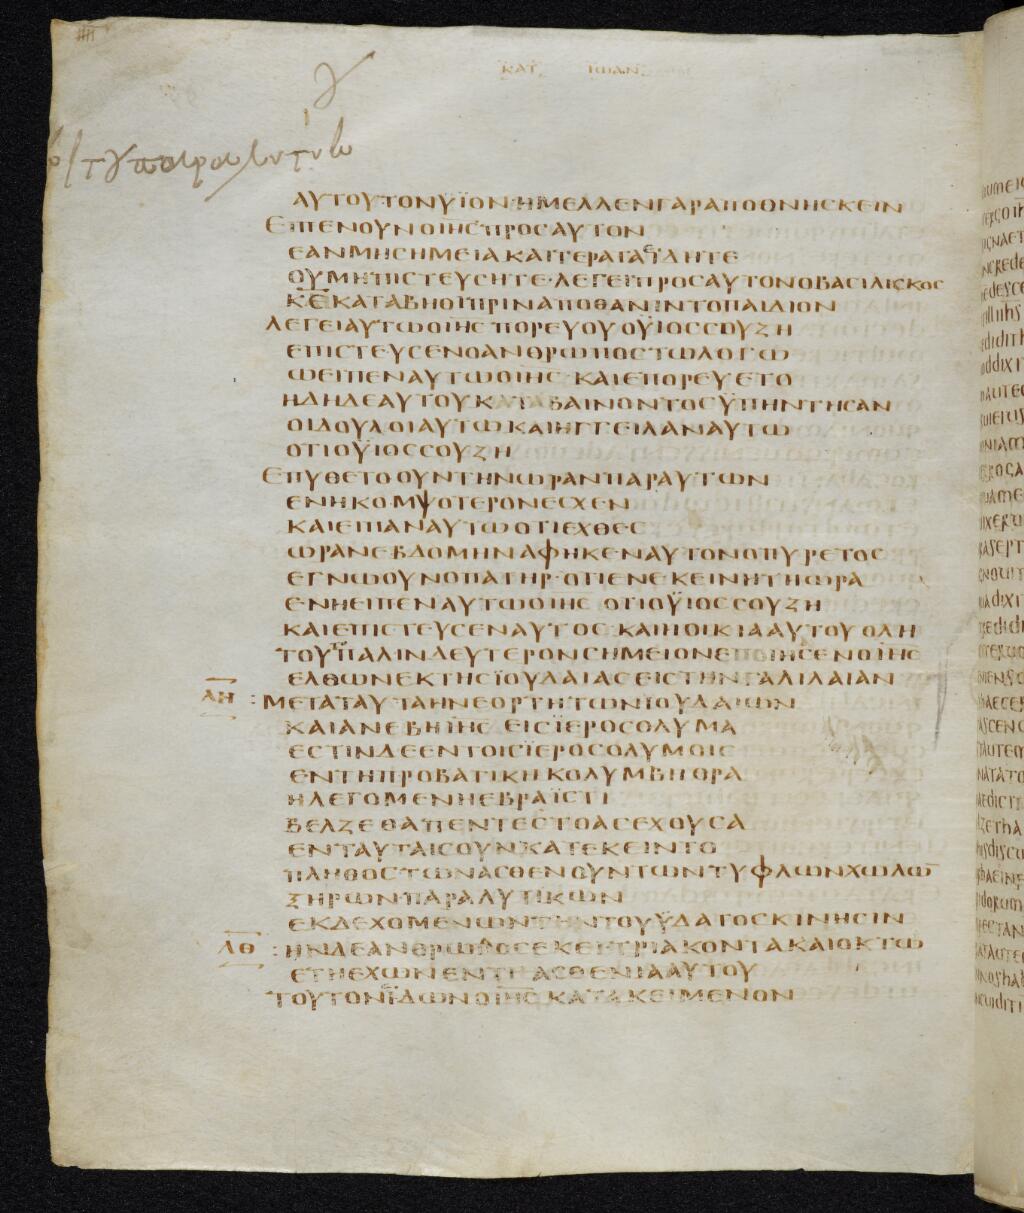 ΚΑΤ ΙΩΑΝ
ΑΥΤΟΥΤΟΝΥΪΟΝ·ΗΜΕΛΛΕΝΓΑΡΑΠΟΘΝΗΣΚΕΙΝ
ΕΙΠΕΝΟΥΝΟΙΗΣΠΡΟΣΑΥΤΟΝ
ΕΑΝΜΗΣΗΜΕΙΑΚΑΙΤΕΡΑΤΑΕΙΔΗΤΕ
ΟΥΜΗΠΙΣΤΕΥΣΗΤΕ·ΛΕΓΕΙΠΡΟΣΑΥΤΟΝΟΒΑΣΙΛΙΣΚΟΣ
ΚΕΚΑΤΑΒΗΘΙΠΡΙΝΑΠΟΘΑΝΙΝΤΟΠΑΙΔΙΟΝ
ΛΕΓΕΙΑΥΤΩΟΙΗΣ ΠΟΡΕΥΟΥΟΥΪΟΣΣΟΥΖΗ
ΕΠΙΣΤΕΥΣΕΝΟΑΝΘΡΩΠΟΣΤΩΛΟΓΩ
ΩΕΙΠΕΝΑΥΤΩΟΙΗΣ·ΚΑΙΕΠΟΡΕΥΕΤΟ
ΗΔΗΔΕΑΥΤΟΥΚΑΤΑΒΑΙΝΟΝΤΟΣΫΠΗΝΤΗΣΑΝ
ΟΙΔΟΥΛΟΙΑΥΤΩΚΑΙΗΓΓΕΙΛΑΝΑΥΤΩ
ΟΤΙΟΥΪΟΣΣΟΥΖΗ
ΕΠΥΘΕΤΟΟΥΝΤΗΝΩΡΑΝΠΑΡΑΥΤΩΝ
ΕΝΗΚΟΜΨΟΤΕΡΟΝΕΣΧΕΝ
ΚΑΙΕΙΠΑΝΑΥΤΩΟΤΙΕΧΘΕΣ
ΩΡΑΝΕΒΔΟΜΗΝΑΦΗΚΕΝΑΥΤΟΝΟΠΥΡΕΤΟΣ
ΕΓΝΩΟΥΝΟΠΑΤΗΡ·ΟΤΙΕΝΕΚΕΙΝΗΤΗΩΡΑ
ΕΝΗΕΙΠΕΝΑΥΤΩΟΙΗΣ ΟΤΙΟΥΪΟΣΣΟΥΖΗ
ΚΑΙΕΠΙΣΤΕΥΣΕΝΑΥΤΟΣ·ΚΑΙΗΟΙΚΙΑΑΥΤΟΥΟΛΗ
ΤΟΥΠΑΛΙΝΔΕΥΤΕΡΟΝΣΗΜΕΙΟΝΕΠΟΙΗΣΕΝΟΙΗΣ
ΕΛΘΩΝΕΚΤΗΣΪΟΥΔΑΙΑΣΕΙΣΤΗΝΓΑΛΙΛΑΙΑΝ
ΛΗ :ΜΕΤΑΤΑΥΤΑΗΝΕΟΡΤΗΤΩΝΪΟΥΔΑΙΩΝ
ΚΑΙΑΝΕΒΗΙΗΣ ΕΙΣΪΕΡΟΣΟΛΥΜΑ
ΕΣΤΙΝΔΕΕΝΤΟΙΣΪΕΡΟΣΟΛΥΜΟΙΣ
ΕΝΤΗΠΡΟΒΑΤΙΚΗΚΟΛΥΜΒΗΘΡΑ
ΗΛΕΓΟΜΕΝΗΕΒΡΑΪΣΤΙ
ΒΕΛΖΕΘΑΠΕΝΤΕΣΤΟΑΣΕΧΟΥΣΑ
ΕΝΤΑΥΤΑΙΣΟΥΝΚΑΤΕΚΕΙΝΤΟ
ΠΛΗΘΟΣΤΩΝΑΣΘΕΝΟΥΝΤΩΝΤΥΦΛΩΝΧΩΛΩ̅
ΞΗΡΩΝΠΑΡΑΛΥΤΙΚΩΝ
ΕΚΔΕΧΟΜΕΝΩΝΤΗΝΤΟΥΫΔΑΤΟΣΚΙΝΗΣΙΝ
ΛΘ :ΗΝΔΕΑΝΘΡΩΠΟΣΕΚΕΙΤΡΙΑΚΟΝΤΑΚΑΙΟΚΤΩ
ΕΤΗΕΧΩΝΕΝΤΗΑΣΘΕΝΙΑΑΥΤΟΥ
ΤΟΥΤΟΝΕΙΔΩΝΟΙΗΣ ΚΑΤΑΚΕΙΜΕΝΟΝ